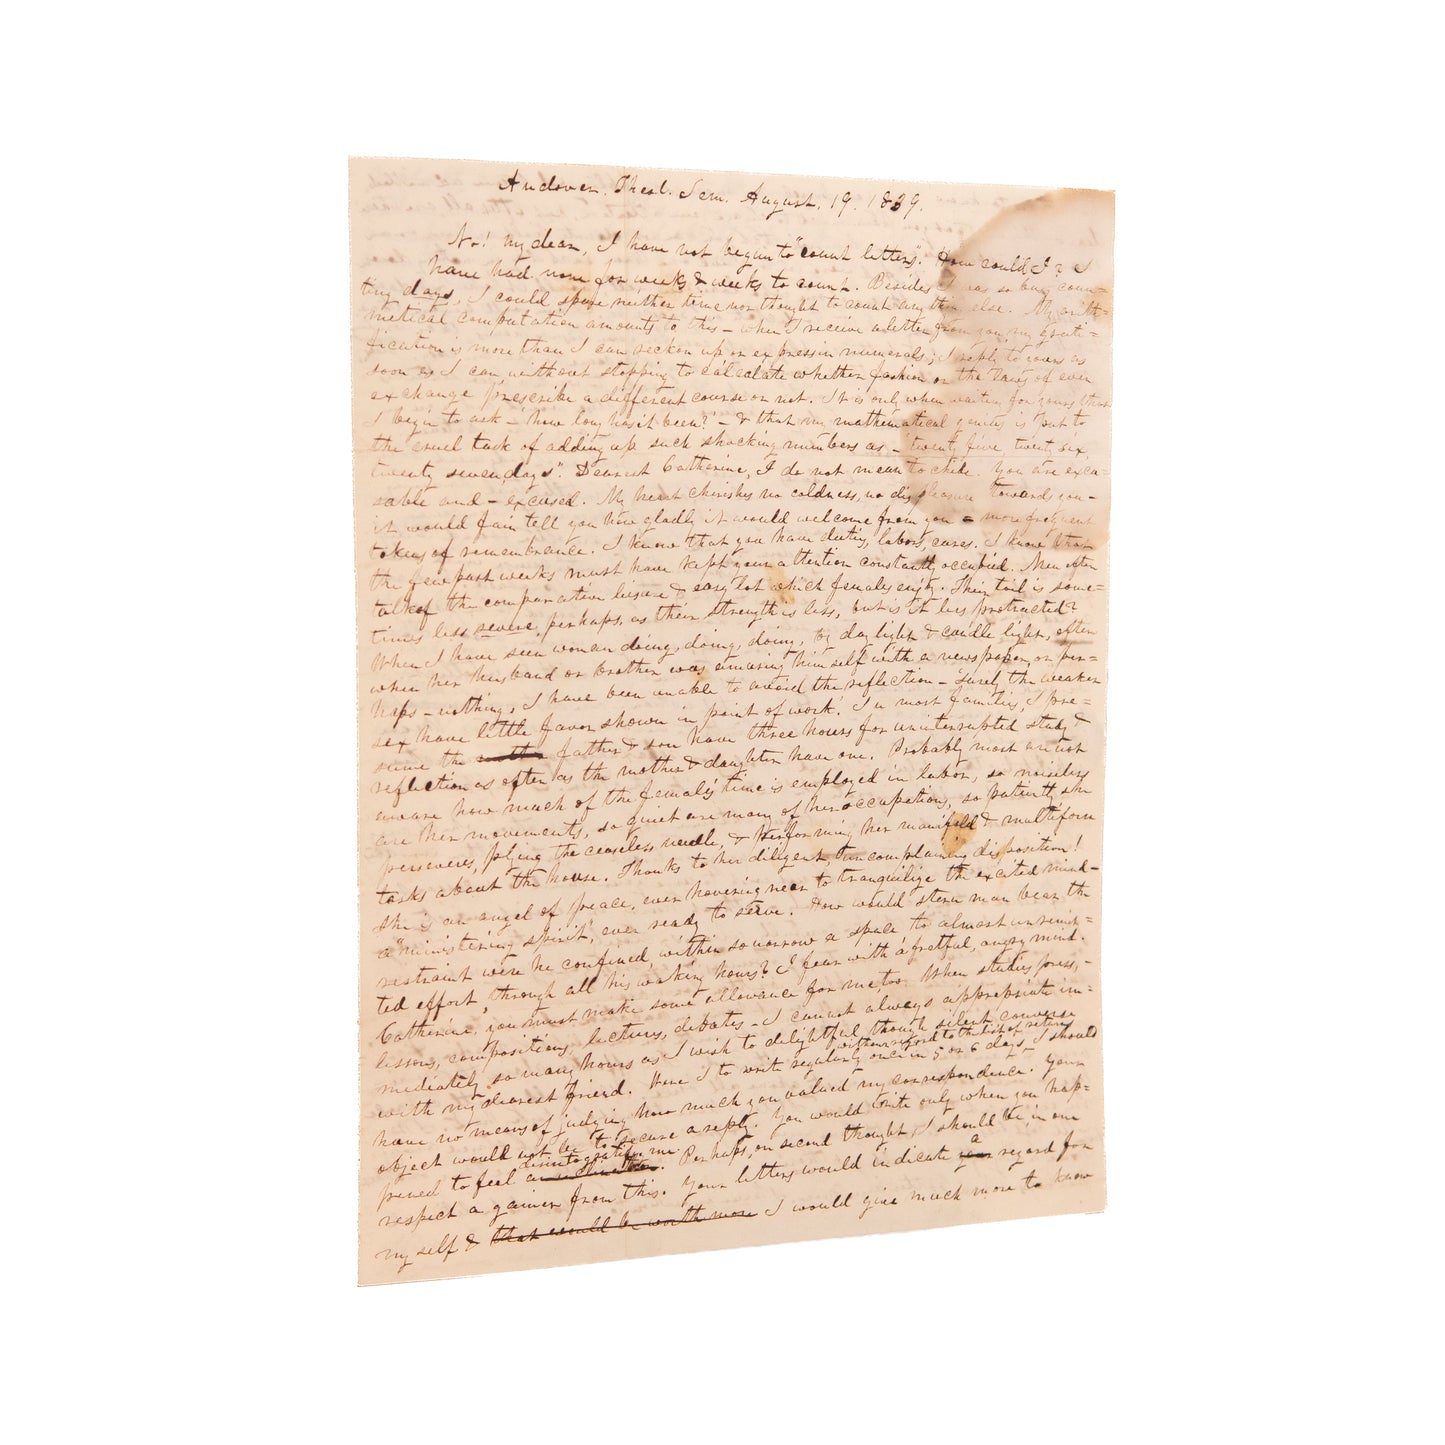 Andover. Theol. Sem. August. 19. 1839.
No! my dear, I have not begun to "count letters". How could I? I
have had none for weeks & weeks to count. Besides I was so busy coun-
ting days, I could spare neither time nor thought to count anything else. My arith=
metical computation amounts to this – when I receive a letter from you, my grati=
fication is more than I can reckon up or express in numerals; I reply to yours as
soon as I can without stopping to calculate whether fashion or the laws of even
exchange prescribe a different course or not. It is only when waiting for yours that
I begin to ask – 'how long has it been?' – & that my mathematical genius is put to
the cruel task of adding up such shocking numbers as – twenty five, twenty six,
twenty seven, days". Dearest Catherine, I do not mean to chide. You are excu-
sable and – excused. My heart cherishes no coldness, no displeasure towards you –
it would fain tell you how gladly it would welcome from you – more frequent
tokens of remembrance. I know that you have duties, labors, cares. I know that
the few past weeks must have kept your attention constantly occupied. Men often
talk of the comparative leisure & easy lot which females enjoy. Their toil is some=
times less severe, perhaps, as their strength is less, but is it less protracted?
When I have seen woman doing, doing, doing, by day light & candle light, often
when her husband or brother was amusing himself with a newspaper, or per=
haps – nothing, I have been unable to avoid the reflection – 'Surely the weaker
sex have little favor shown in point of work.' In most families, I pre=
sume the father & son have three hours for uninterrupted study &
reflection as often as the mother & daughter have one. Probably most are not
aware how much of the female's time is employed in labor, so noiseless
are her movements, so quiet are many of her occupations, so patiently she
perseveres, plying the ceaseless needle, & performing her manifold & multiform
tasks about the house. Thanks to her diligent, uncomplaining disposition!
She is an angel of peace, ever hovering near to tranquilize the excited mind –
a "ministering spirit", ever ready to serve. How would stern man bear the
restraint were he confined, within so narrow a space to almost unremit=
ted effort, through all his waking hours? I fear with a fretful, angry mind.
Catherine, you must make some allowance for me, too. When studies press, –
lessons, compositions, lectures, debates – I cannot always appropriate im=
mediately so many hours as I wish to delightful, though silent converse
with my dearest friend. Were I to write regularly once in 5 or 6 days, without regard to the list of returns I should
have no means of judging how much you valued my correspondence. Your
object would not be to secure a reply. You would write only when you hap=
pened to feel disinterestedly me. Perhaps, on second thought, I should be, in one
respect a gainer from this. Your letters would indicate a regard for
my self & that would be worth more I would give much more to know